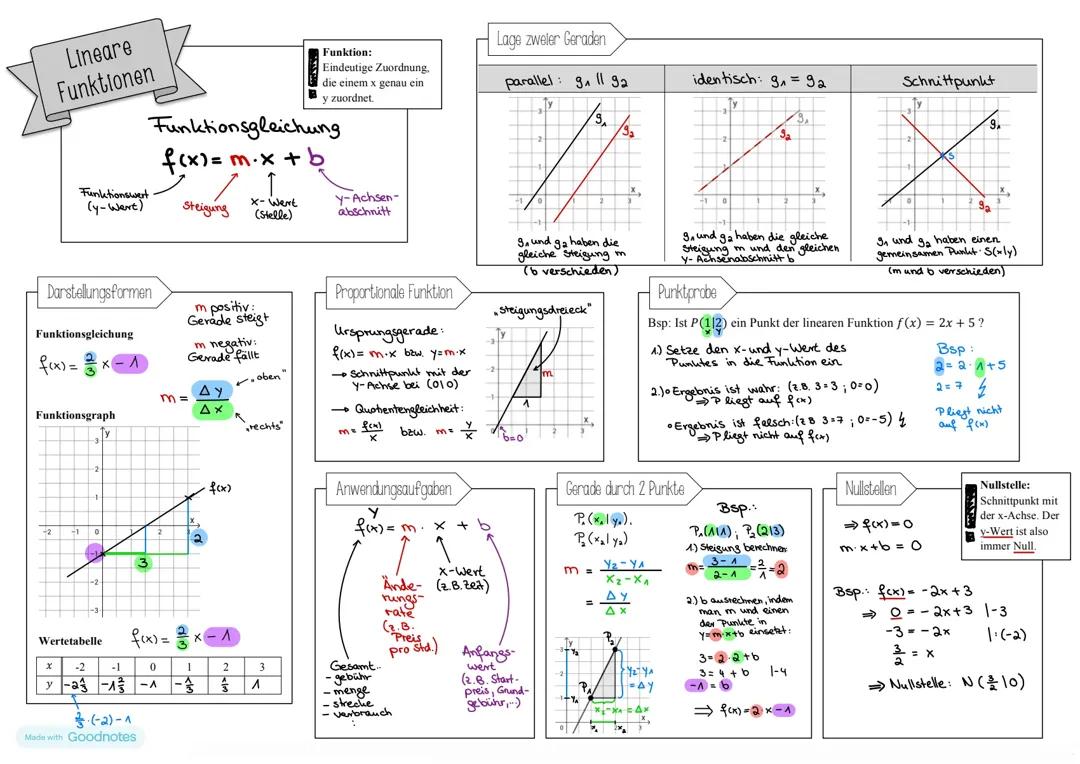 Lineare
Funktionen
Funktion:
Eindeutige Zuordnung,
die einem x genau ein
y zuordnet.
Funktionsgleichung
f(x) = m·x + b
Funktionswert
(y-Wert)
Steigung
x-Wert
(Stelle)
y-Achsen-
abschnitt
Lage zweier Geraden
parallel: g₁ || g₂
identisch: g₁ = g₂
Schnittpunkt
g₁ und g₂ haben die
gleiche Steigung m
(b verschieden)
g₁ und g₂ haben die gleiche
Steigung m und den gleichen
y-Achsenabschnitt b
g₁ und g₂ haben einen
gemeinsamen Punkt S(x|y)
(m und b verschieden)
Darstellungsformen
m positiv:
Gerade steigt
m negativ:
Gerade fällt
Funktionsgleichung
f(x) = 2/3 x - 1
m = Δy/Δx
"oben"
"rechts"
Funktionsgraph
f(x)
2
3
Wertetabelle
f(x) = 2/3 x - 1
x -2 -1 0 1 2 3
y -2 1/3 -1 2/3 -1 -1/3 1/3 1
2/3·(-2) - 1
Made with Goodnotes
Proportionale Funktion
"Steigungsdreieck"
Ursprungsgerade:
f(x) = m·x bzw. y = m·x
→ Schnittpunkt mit der
y-Achse bei (0|0)
→ Quotientengleichheit:
m = f(x)/x bzw. m = y/x
m
1
b=0
Punktprobe
Bsp: Ist P(1|2) ein Punkt der linearen Funktion f(x) = 2x + 5 ?
x y
1.) Setze den x- und y-Wert des
Punktes in die Funktion ein
2.) ∘ Ergebnis ist wahr: (z.B. 3=3 ; 0=0)
⇒ P liegt auf f(x)
∘ Ergebnis ist falsch: (z.B. 3=7 ; 0=-5) ↯
⇒ P liegt nicht auf f(x)
Bsp:
2 = 2·1+5
2 = 7 ↯
P liegt nicht
auf f(x)
Anwendungsaufgaben
y
f(x) = m · x + b
"Ände-
rungs-
rate
(z.B.
Preis
pro Std.)
x-Wert
(z.B. Zeit)
Gesamt..
- gebühr
- menge
- strecke
- verbrauch
Anfangs-
wert
(z.B. Start-
preis, Grund-
gebühr,...)
Gerade durch 2 Punkte
P₁(x₁|y₁),
P₂(x₂|y₂)
m = y₂-y₁/x₂-x₁
= Δy/Δx
P₂
P₁
y₂
y₁
y₂-y₁
= Δy
x₂-x₁ = Δx
x₁ x₂
Bsp.:
P₁(1|1), P₂(2|3)
1.) Steigung berechnen
m = 3-1/2-1 = 2/1 = 2
2.) b ausrechnen, indem
man m und einen
der Punkte in
y=m·x+b einsetzt:
3 = 2·2+b
3 = 4 + b |-4
-1 = b
⇒ f(x) = 2x-1
Nullstellen
Nullstelle:
Schnittpunkt mit
der x-Achse. Der
y-Wert ist also
immer Null.
⇒ f(x) = 0
m·x+b = 0
Bsp.: f(x) = -2x+3
⇒ 0 = -2x+3 |-3
-3 = -2x |:(-2)
3/2 = x
⇒ Nullstelle: N(3/2|0)